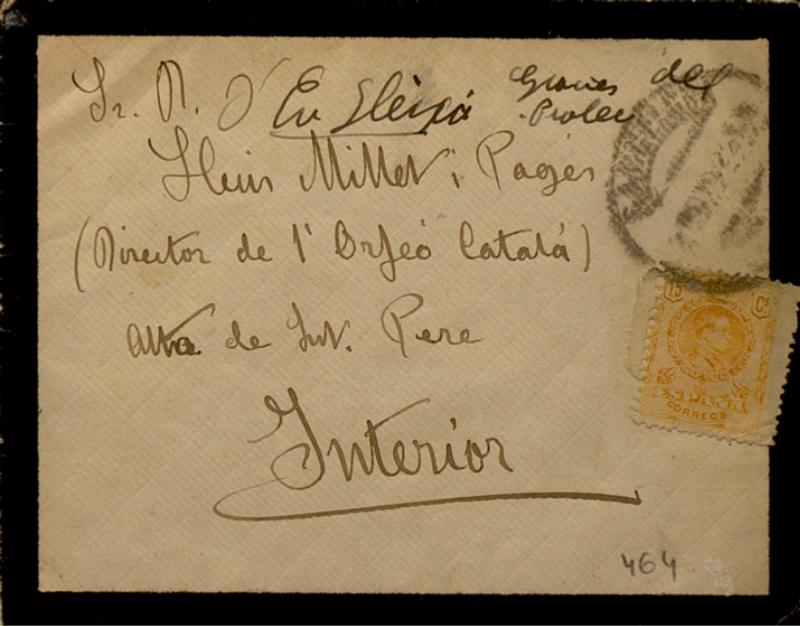 Sr. D. D' En Gleixá Gracies del
Lluis Millet i Pagés
(Director de l' Orfeó Catalá)
Alta de Snt. Pere
Interior
15 Cs
CORREOS
464